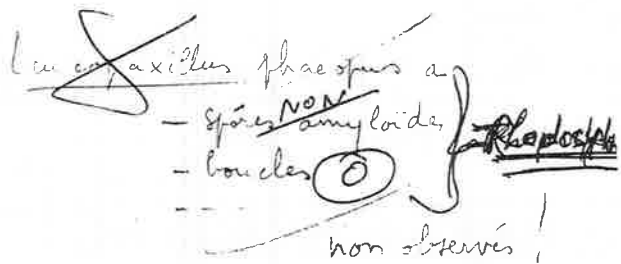 Leucopaxillus phaeopus a
- spores NON amyloïdes
- boucles O
- - - -
non observés !